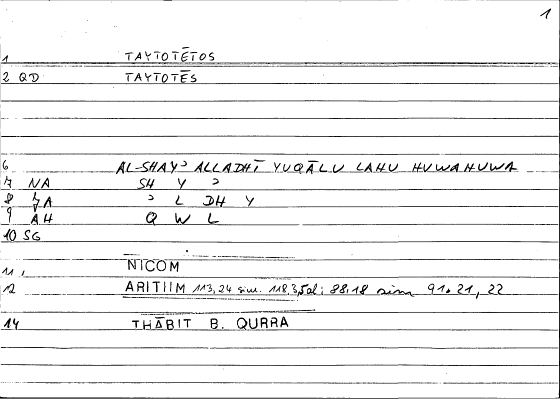 1
1 TAYTOTĒTOS
2 QD TAYTOTĒS
6 AL-SHAYʾ ALLADHĪ YUQĀLU LAHU HUWAHUWA
7 NA SH Y ʾ
8 YA ʾ L DH Y
9 AH Q W L
10 SG
11 NICOM
12 ARITIIM 113,24 sim. 118,3 88,18 sim 91.21, 22
14 THĀBIT B. QURRA